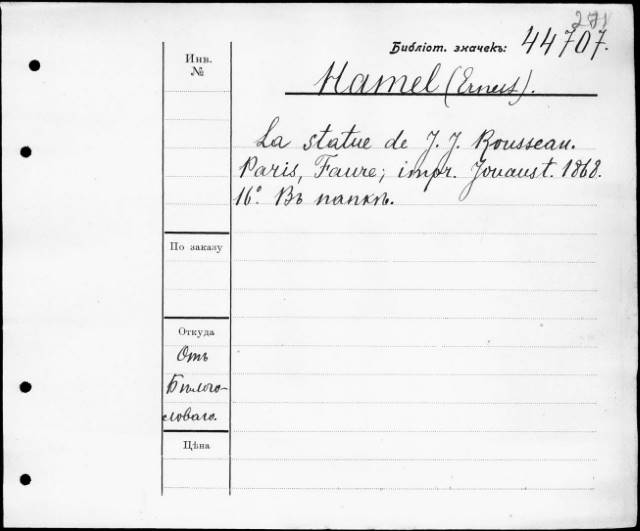 271
Библіот. значекъ: 44707.
Инв.
№
Hamel (Ernest).
La statue de J. J. Rousseau.
Paris, Faure; impr. Jouaust. 1868.
16°. Въ папкѣ.
По заказу
Откуда
Отъ
Бѣлого-
словаго.
Цѣна